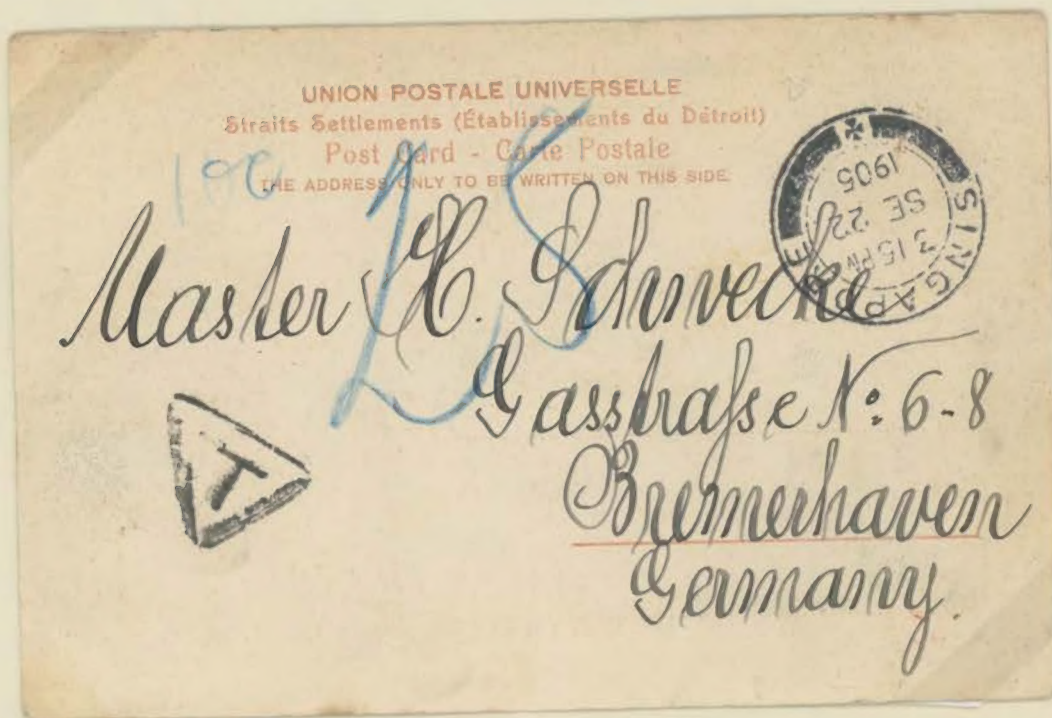 UNION POSTALE UNIVERSELLE
Straits Settlements (Établissements du Détroit)
Post Card - Carte Postale
THE ADDRESS ONLY TO BE WRITTEN ON THIS SIDE.
SINGAPORE
3 15 PM
SE 22
1905
25
Master H. Schwecke
Gasstraße No: 6-8
Bremerhaven
Germany.
T